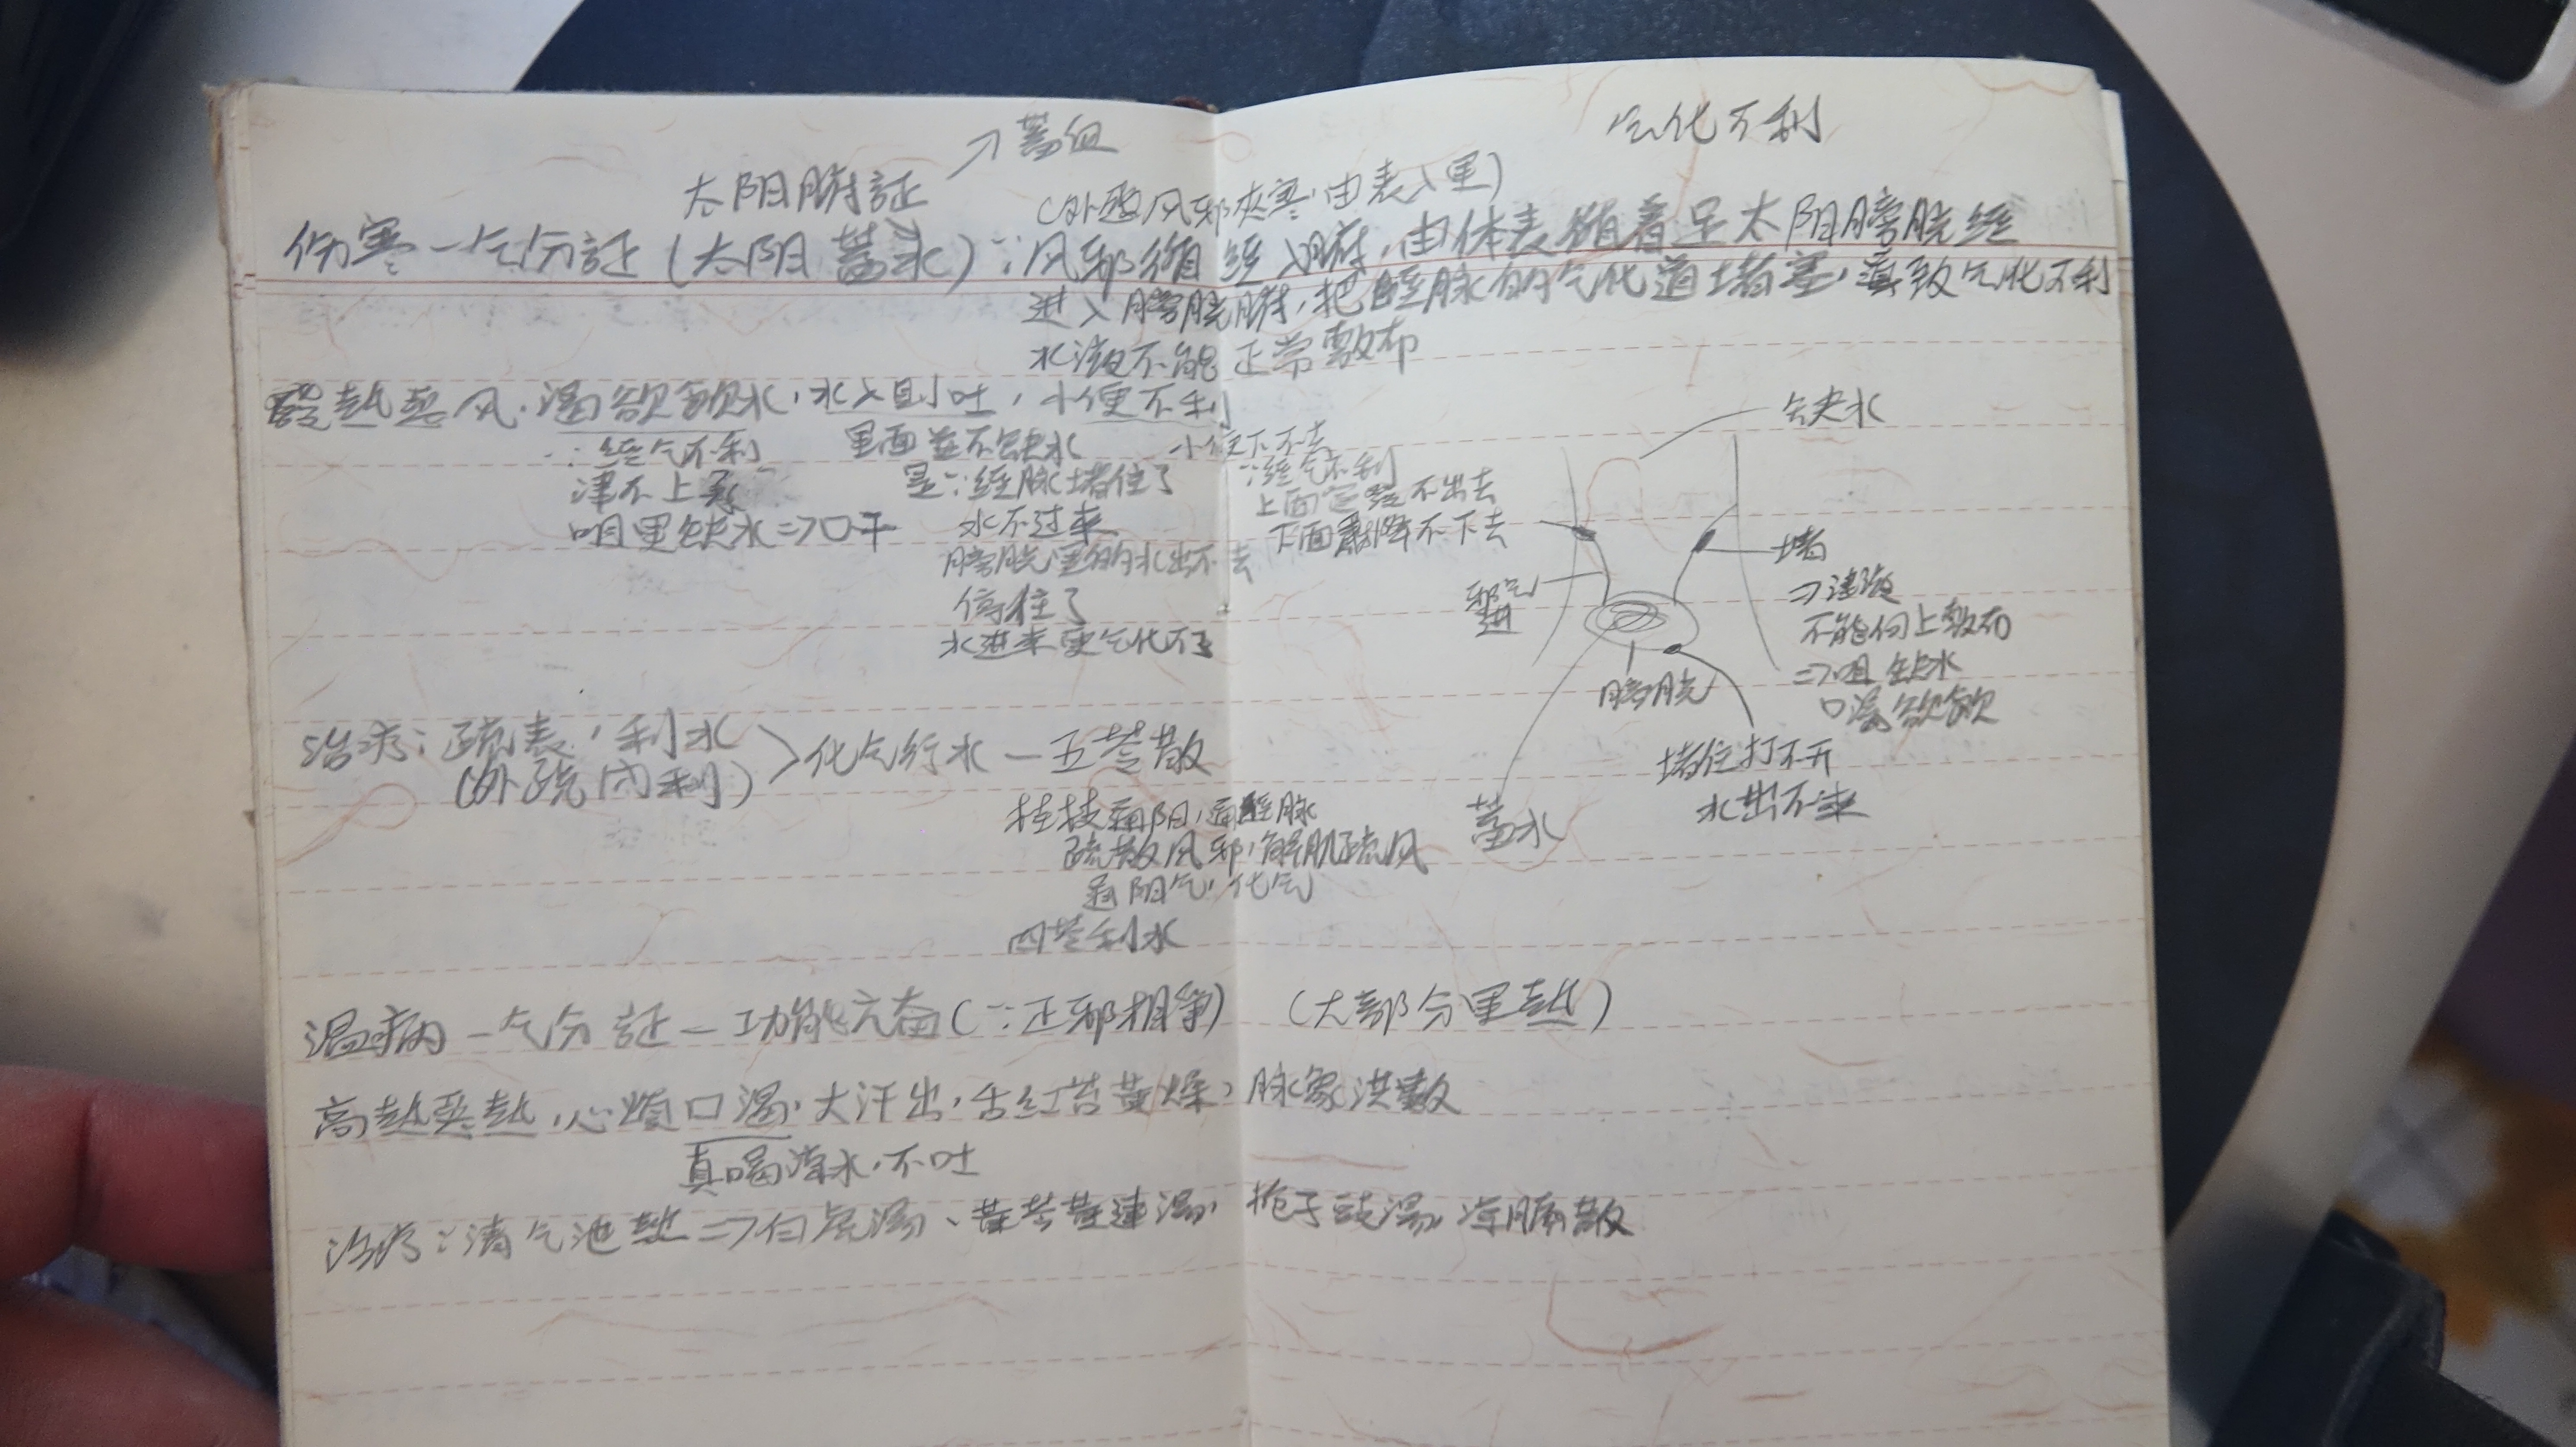 气化不利
↗蓄血
太阳腑証
(外感风邪夹寒,由表入里)
伤寒—气分証(太阳蓄水)∵风邪循經入腑,由体表循着足太阳膀胱經
进入膀胱腑,把經脉的气化道堵塞,導致气化不利
水液不能正常敷布
發热恶风,渴欲飲水,水入則吐,小便不利
∵經气不利
津不上承
咀里缺水⇒口干
里面並不缺水
是∵經脉堵住了
水不过来
膀胱里的水出不去
停住了
水进来更气化不了
小便下不去
∵經气不利
上面宣發不出去
下面肅降不下去
会缺水
堵
⇒津液
不能向上敷布
⇒咀缺水
口渴欲飲
邪气
进
膀胱
堵住打不开
水出不来
蓄水
治疗:疏表,利水
(外疏内利)
>化气行水—五苓散
桂枝通阳,通經脉
疏散风邪,解肌疏风
通阳气,化气
四苓利水
温病—气分証—功能亢奋(∵正邪相争) (大部分里热)
高热恶热,心煩口渴,大汗出,舌红苔黄燥,脉象洪數
真喝涼水,不吐
治疗:清气泄热⇒白虎湯、黄芩黄連湯,栀子豉湯,涼膈散